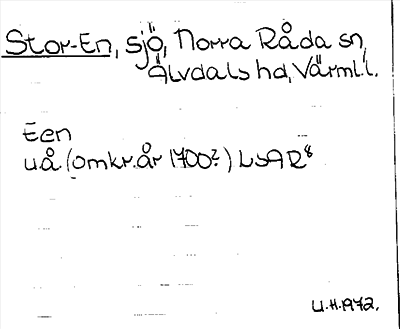 Stor-En, sjö, Norra Råda sn,
Älvdals hd, Värml. l.
Een
uå (omkr. år 1700?) LSA R⁸
U.H. 1972.